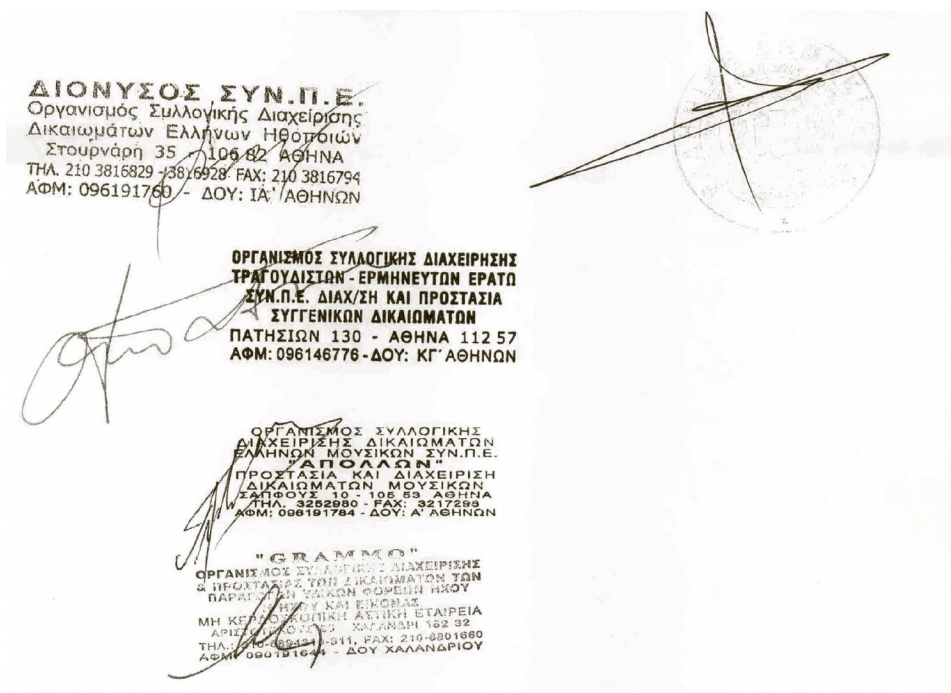 ΔΙΟΝΥΣΟΣ ΣΥΝ.Π.Ε.
Οργανισμός Συλλογικής Διαχείρισης
Δικαιωμάτων Ελλήνων Ηθοποιών
Στουρνάρη 35 - 106 82 ΑΘΗΝΑ
ΤΗΛ. 210 3816829 - 3816928 FAX: 210 3816794
ΑΦΜ: 096191760 - ΔΟΥ: ΙΑ' ΑΘΗΝΩΝ
ΟΡΓΑΝΙΣΜΟΣ ΣΥΛΛΟΓΙΚΗΣ ΔΙΑΧΕΙΡΗΣΗΣ
ΤΡΑΓΟΥΔΙΣΤΩΝ - ΕΡΜΗΝΕΥΤΩΝ ΕΡΑΤΩ
ΣΥΝ.Π.Ε. ΔΙΑΧ/ΣΗ ΚΑΙ ΠΡΟΣΤΑΣΙΑ
ΣΥΓΓΕΝΙΚΩΝ ΔΙΚΑΙΩΜΑΤΩΝ
ΠΑΤΗΣΙΩΝ 130 - ΑΘΗΝΑ 112 57
ΑΦΜ: 096146776 - ΔΟΥ: ΚΓ' ΑΘΗΝΩΝ
ΟΡΓΑΝΙΣΜΟΣ ΣΥΛΛΟΓΙΚΗΣ
ΔΙΑΧΕΙΡΙΣΗΣ ΔΙΚΑΙΩΜΑΤΩΝ
ΕΛΛΗΝΩΝ ΜΟΥΣΙΚΩΝ ΣΥΝ.Π.Ε.
"ΑΠΟΛΛΩΝ"
ΠΡΟΣΤΑΣΙΑ ΚΑΙ ΔΙΑΧΕΙΡΙΣΗ
ΔΙΚΑΙΩΜΑΤΩΝ ΜΟΥΣΙΚΩΝ
ΣΑΠΦΟΥΣ 10 - 105 53 ΑΘΗΝΑ
ΤΗΛ. 3252980 - FAX: 3217298
ΑΦΜ: 096191784 - ΔΟΥ: Α' ΑΘΗΝΩΝ
"GRAMMO"
ΟΡΓΑΝΙΣΜΟΣ ΣΥΛΛΟΓΙΚΗΣ ΔΙΑΧΕΙΡΙΣΗΣ
& ΠΡΟΣΤΑΣΙΑΣ ΤΩΝ ΔΙΚΑΙΩΜΑΤΩΝ ΤΩΝ
ΠΑΡΑΓΩΓΩΝ ΥΛΙΚΩΝ ΦΟΡΕΩΝ ΗΧΟΥ
ΚΑΙ ΕΙΚΟΝΑΣ
ΜΗ ΚΕΡΔΟΣΚΟΠΙΚΗ ΑΣΤΙΚΗ ΕΤΑΙΡΕΙΑ
ΧΑΛΑΝΔΡΙ 152 32
ΤΗΛ.: FAX: 210-6801660
ΑΦΜ: 090191644 - ΔΟΥ ΧΑΛΑΝΔΡΙΟΥ